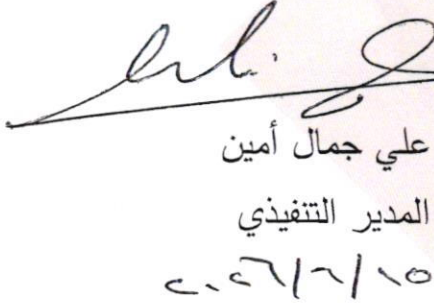 علي جمال أمين
المدير التنفيذي
٢٠٢٦/٦/١٥